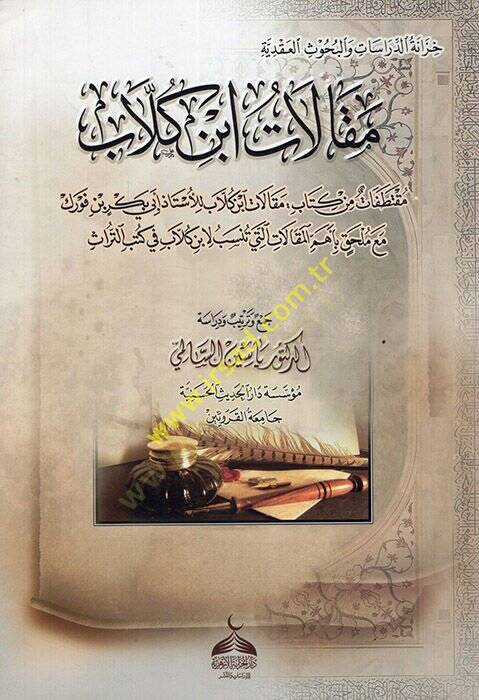 خزانة الدراسات والبحوث العقدية
مقالات ابن كلاب
مقتطفات من كتاب: مقالات ابن كلاب للأستاذ أبي بكر بن فورك
مع ملحق بأهم المقالات التي تنسب لابن كلاب في كتب التراث
جمع وترتيب ودراسة
الدكتور ياسين السالمي
مؤسسة دار الحديث الحسنية
جامعة القرويين